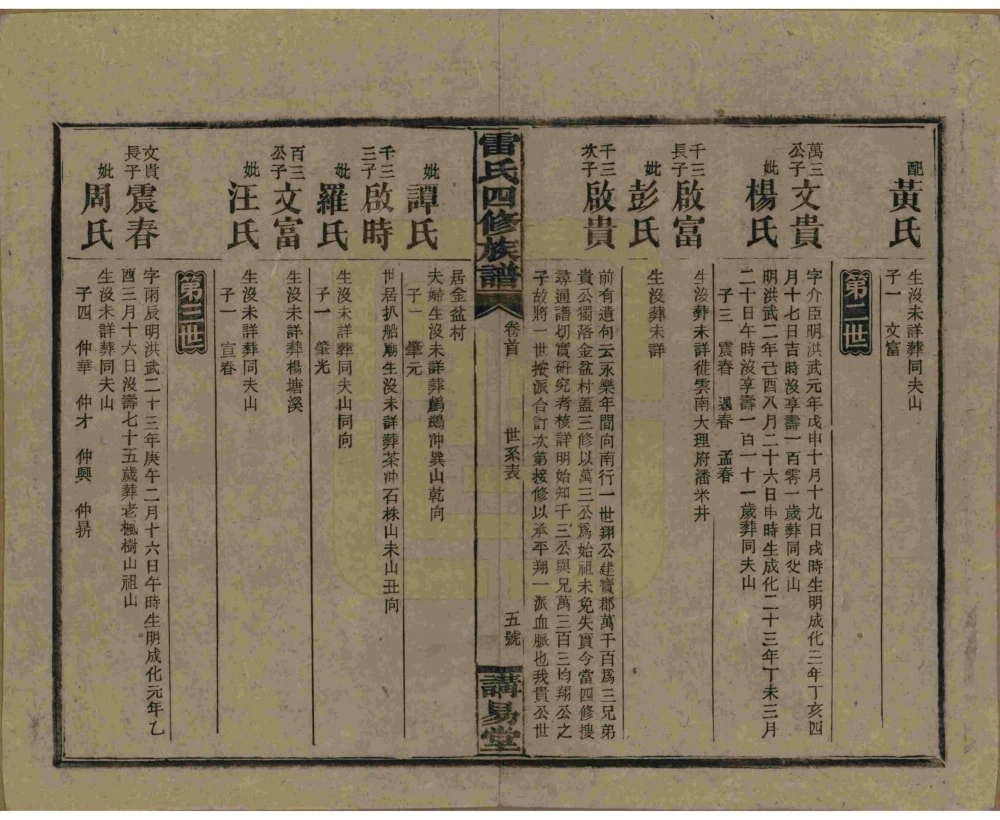 配黃氏
生沒未詳葬同夫山
子一　文富
第二世
萬三公子文貴
字介臣明洪武元年戊申十月十九日戌時生明成化三年丁亥四
月十七日吉時沒享壽一百零一歲葬同夂山
妣楊氏
明洪武二年己酉八月二十六日申時生成化二十三年丁未三月
二十日午時沒享壽一百一十一歲葬同夫山
子三　震春　遇春　孟春
千三長子啟富
生沒葬未詳徙雲南大理府潘米井
妣彭氏
生沒葬未詳
千三次子啟貴
前有遺句云永樂年間向南行一世翔公建寶郡萬千百爲三兄弟
貴公獨落金盆村蓋三修以萬三公爲始祖未免失實今當四修搜
尋通譜切實研究考核詳明始知千三公與兄萬三百三均翔公之
子故將一世按派合訂次第接修以承平翔一派血脈也我貴公世
雷氏四修族譜
卷首
世系表
五號
講易堂
居金盆村
妣譚氏
夫婦生沒未詳葬鵝鵝沖巽山乾向
子一　肇元
千三三子啟時
世居扒船廟生沒未詳葬茶沖石株山未山丑向
妣羅氏
生沒未詳葬同夫山同向
子一　肇光
百三公子文富
生沒未詳葬楊塘溪
妣汪氏
生沒未詳葬同夫山
子一　宣春
第三世
文貴長子震春
字雨辰明洪武二十三年庚午二月十六日午時生明成化元年乙
酉三月十六日沒壽七十五歲葬老楓樹山祖山
妣周氏
生沒未詳葬同夫山
子四　仲華　仲才　仲興　仲昺